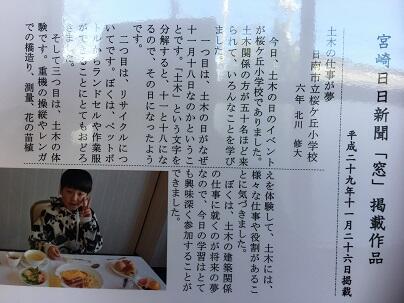 宮崎日日新聞「窓」掲載作品
平成二十九年十一月二十六日掲載
土木の仕事が夢
日南市立桜ケ丘小学校
六年 北川 修大
今日、土木の日のイベント
が桜ケ丘小学校でありました。
土木関係の方が五十名ほど来
られて、いろんなことを学び
ました。
一つ目は、土木の日がなぜ
十一月十八日なのかというこ
とです。「土木」という文字を
分解すると、十一と十八にな
るので、その日になったよう
です。
二つ目は、リサイクルにつ
いてです。ぼくは、ペットボ
トルからランドセルや作業服
ができることにとてもおどろ
きました。
そして三つ目は、土木の体
験です。重機の操縦やレンガ
での構造り、測量、花の苗植
えを体験して、土木には、
様々な仕事や役割があるこ
とに気づきました。
ぼくは、土木の建築関係
の仕事に就くのが将来の夢
なので、今日の学習はとて
も興味深く参加することが
できました。